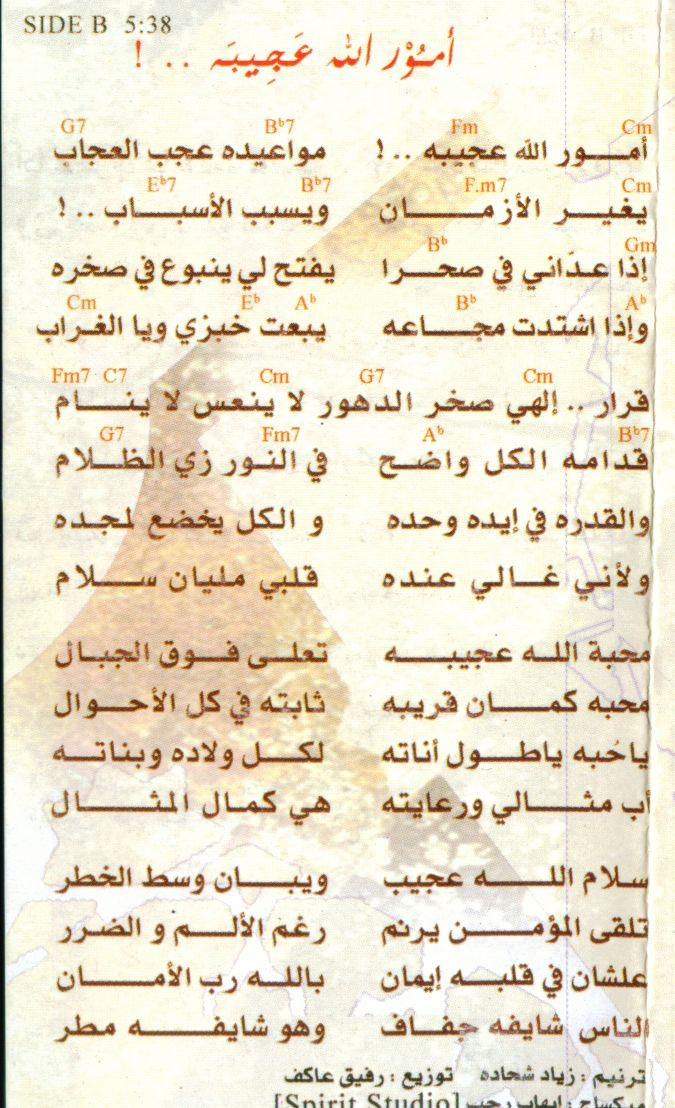 SIDE B 5:38
أمُوْر الله عَجِيبَه .. !
G7 Bb7 Fm Cm
أمـــور الله عجيبه .. ! مواعيده عجب العجاب
Eb7 Bb7 F.m7 Cm
يغيـــر الأزمـــــان ويسبب الأسبـــاب .. !
Bb Gm
إذا عدّاني في صحـــرا يفتح لي ينبوع في صخره
Cm Eb Ab Bb Ab
وإذا اشتدت مجـــــاعه يبعت خبزي ويا الغـراب
Fm7 C7 Cm G7 Cm
قرار .. إلهي صخر الدهور لا ينعس لا ينـــام
G7 Fm7 Ab Bb7
قدامه الكل واضـح في النـور زي الظـلام
والقدره في إيده وحده و الكل يخضع لمجده
ولأني غـــالي عنده قلبي مليان ســـلام
محبة اللـه عجيبـــــه تعلـى فـوق الجبـال
محبه كمـــان قريبه ثابته في كل الأحـوال
ياحُبه ياطـــول أناته لكـــل ولاده وبناتـــه
أب مثـــــالي ورعايته هي كمـال المثـــــال
سـلام اللـــــه عجيب ويبـــان وسط الخطر
تلقى المؤمـــن يرنم رغم الألـــم و الضرر
علشان في قلبـــه إيمان بالله رب الأمـــان
الناس شايفه جفـاف وهو شايفـــــه مطر
ترنيم : زياد شحاده توزيع : رفيق عاكف
ميكساج : إيهاب رجب [Spirit Studio]